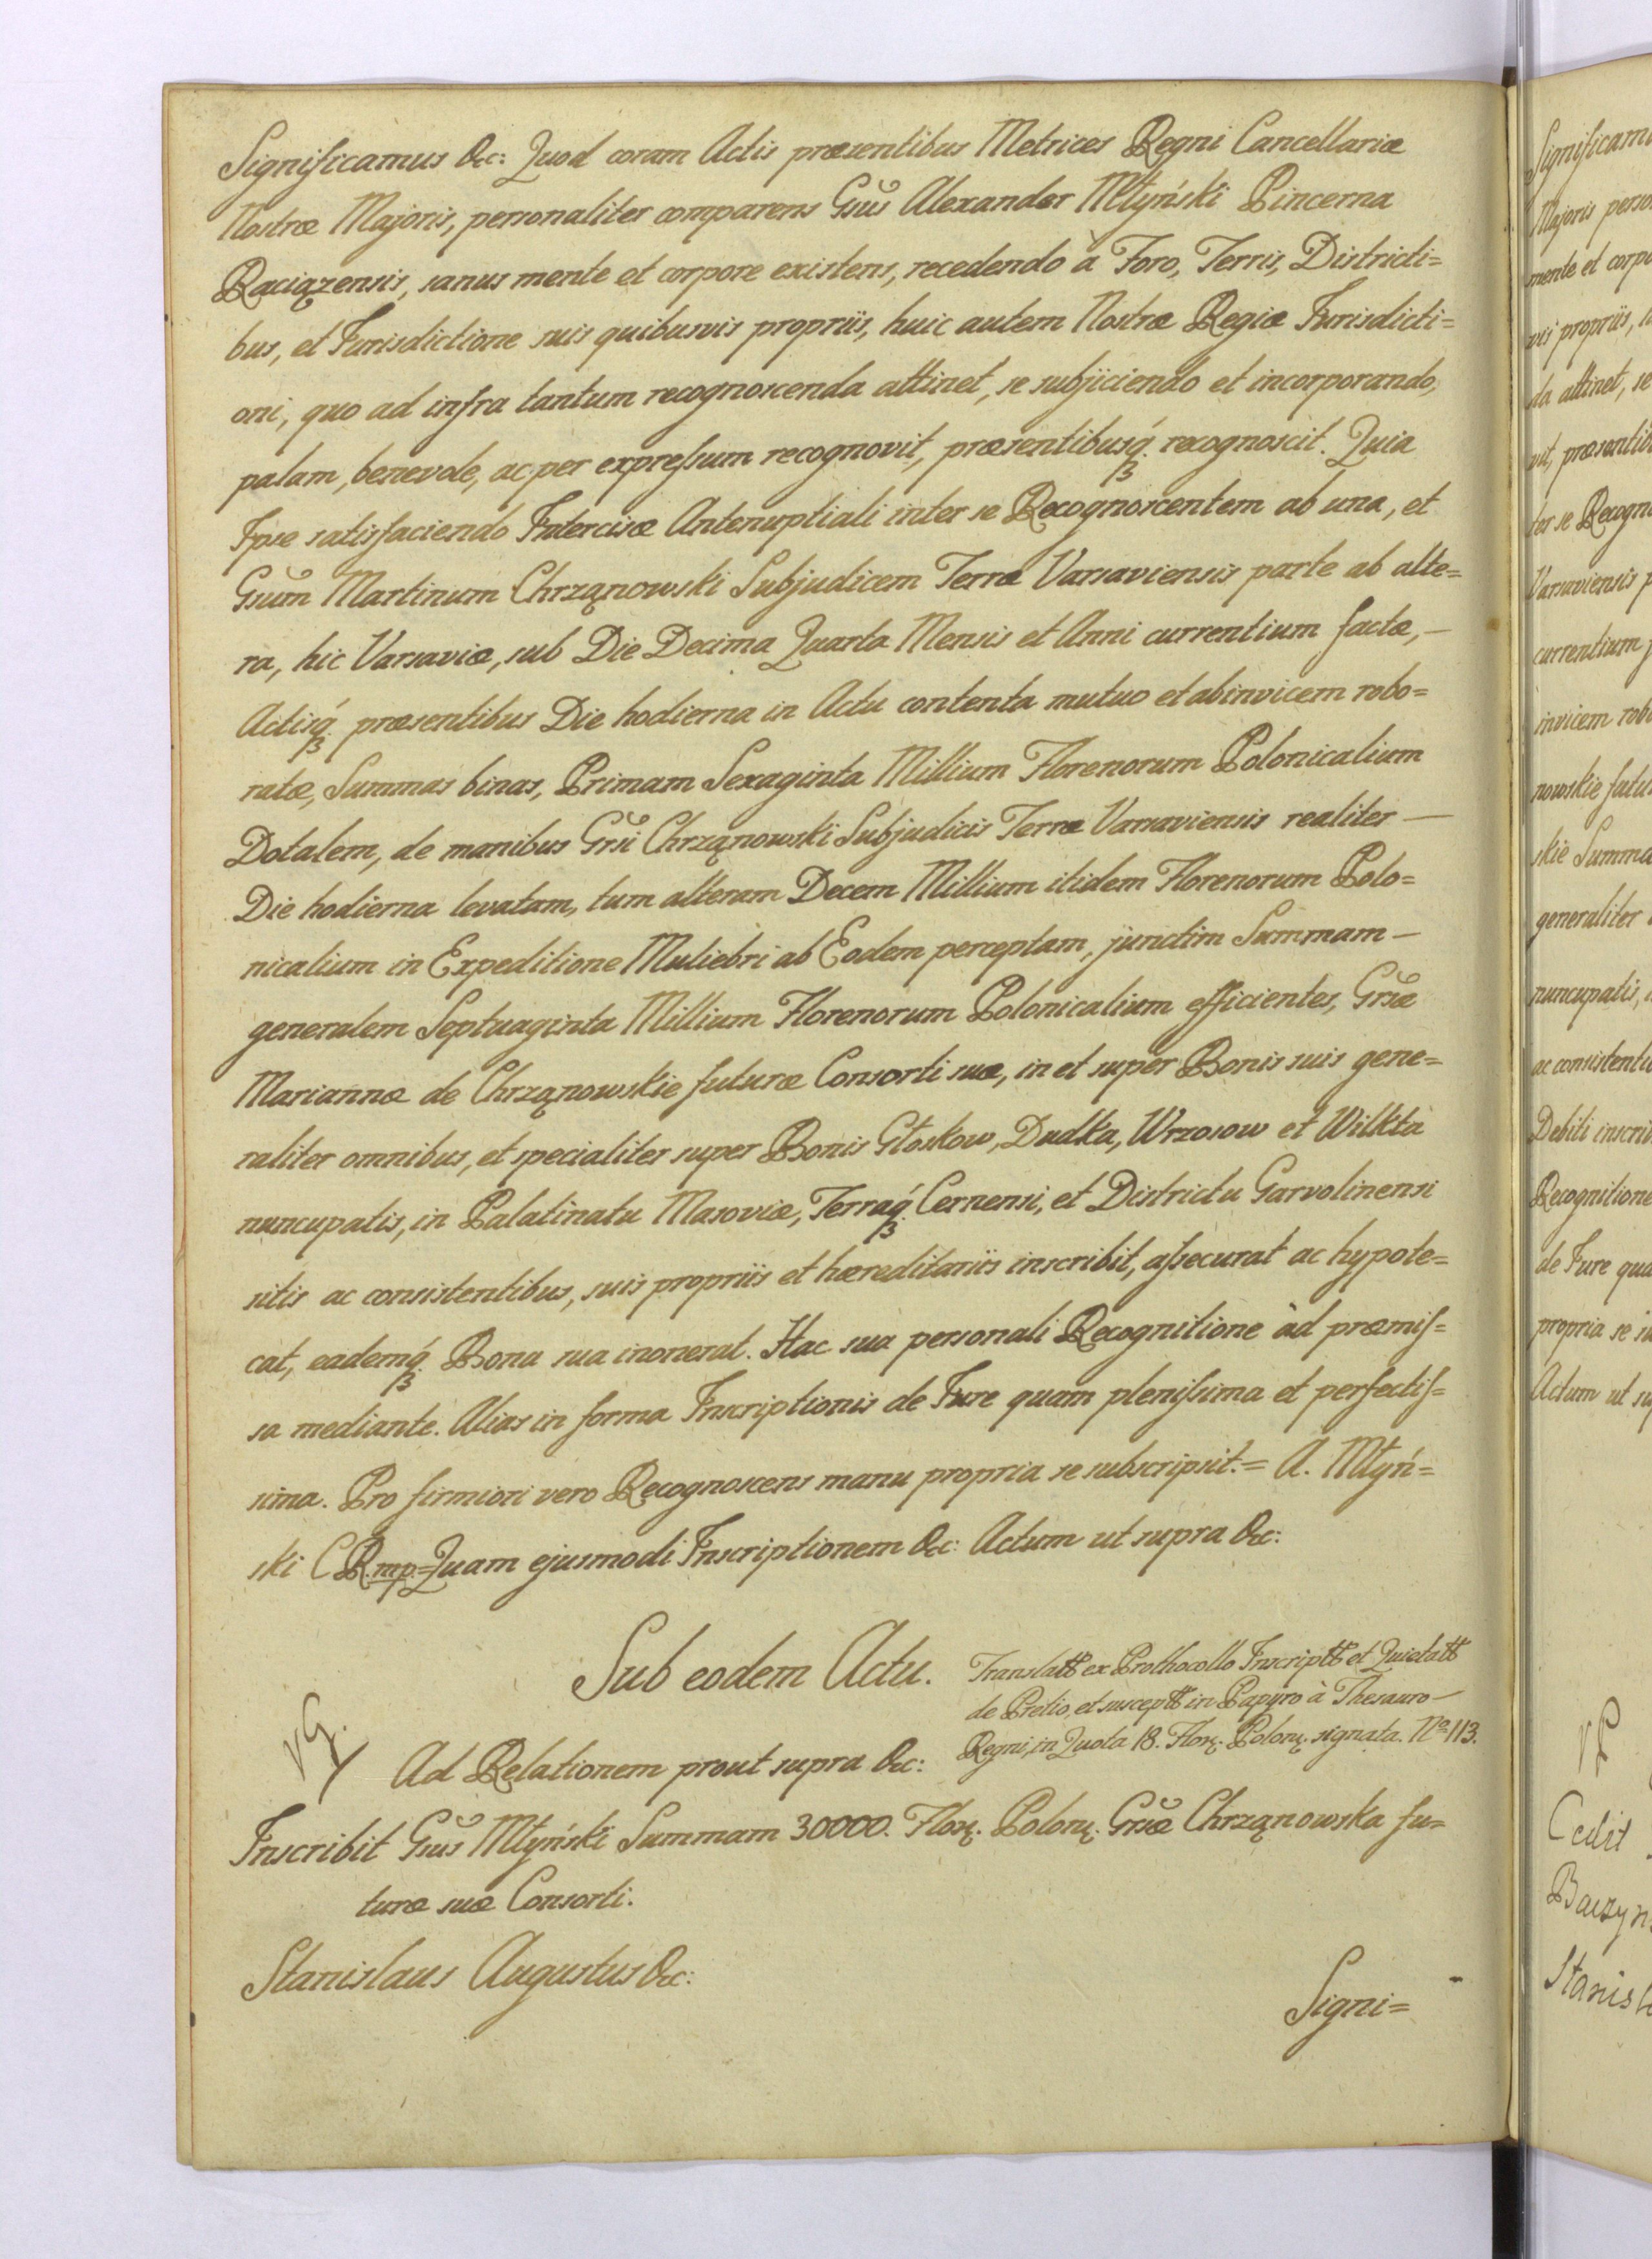 Significamus &c: Quod coram Actis præsentibus Metrices Regni Cancellariæ
Nostræ Majoris, personaliter comparens Gsus Alexander Młyński Pincerna
Raciązensis, sanus mente et corpore existens, recedendo à Foro, Terris, Districti=
bus, et Jurisdictione suis quibusvis propriis, huic autem Nostræ Regiæ Jurisdicti=
oni, quo ad infra tantum recognoscenda attinet, se subjiciendo et incorporando,
palam, benevole, ac per expreſsum recognovit, præsentibusq́ꝫ recognoscit. Quia
Ipse satisfaciendo Intercisæ Antenuptiali inter se Recognoscentem ab una, et
Gsum Martinum Chrząnowski Subjudicem Terræ Varsaviensis parte ab alte=
ra, hic Varsaviæ, sub Die Decima Quarta Mensis et Anni currentium factæ, —
Actisq́ꝫ præsentibus Die hodierna in Actu contenta mutuo et abinvicem robo=
ratæ, Summas binas, Primam Sexaginta Millium Florenorum Polonicalium
Dotalem, de manibus Grsi Chrząnowski Subjudicis Terræ Varsaviensis realiter —
Die hodierna levatam, tum alteram Decem Millium itidem Florenorum Polo=
nicalium in Expeditione Muliebri ab Eodem perceptam, junctim Summam —
generalem Septuaginta Millium Florenorum Polonicalium efficientes, Grsæ
Mariannæ de Chrząnowskie futuræ Consorti suæ, in et super Bonis suis gene=
raliter omnibus, et specialiter super Bonis Głoskow, Dudka, Wrzosow et Wilkta
nuncupatis, in Palatinatu Masoviæ, Terraq́ꝫ Cernensi, et Districtu Garvolinensi
sitis ac consistentibus, suis propriis et hæreditariis inscribit, aſsecurat ac hypote=
cat, eademq́ꝫ Bona sua inonerat. Hac sua personali Recognitione ad præmiſ=
sa mediante. Alias in forma Inscriptionis de Jure quam pleniſsima et perfectiſ=
sima. Pro firmiori vero Recognoscens manu propria se subscripsit. = A. Młyń=
ski C R. mp. = Quam ejusmodi Inscriptionem &c: Actum ut supra &c:
Sub eodem Actu.
Translatt ex Prothocollo Inscriptt et Quietatt
de Pretio, et susceptt in Papyro à Thesauro —
Regni, in Quota 18. Flor. Polon. signata. No 113.
Ad Relationem prout supra &c:
Inscribit Gsus Młyński Summam 30000. Flor. Polon. Grsæ Chrząnowska fu=
turæ suæ Consorti.
Stanislaus Augustus &c:
Signi=
Significam
Majoris perso
mente et corpo
vis propriis,
da attinet, se
vit, præsentib
ter se Recogn
Varsaviensis p
currentium
invicem rob
nowskie futu
skie Summa
generaliter
nuncupatis,
ac consistentib
Debiti inscrib
Recognitione
de Jure qua
propria se su
Actum ut su
Cedit
Baczyn
Stanisl